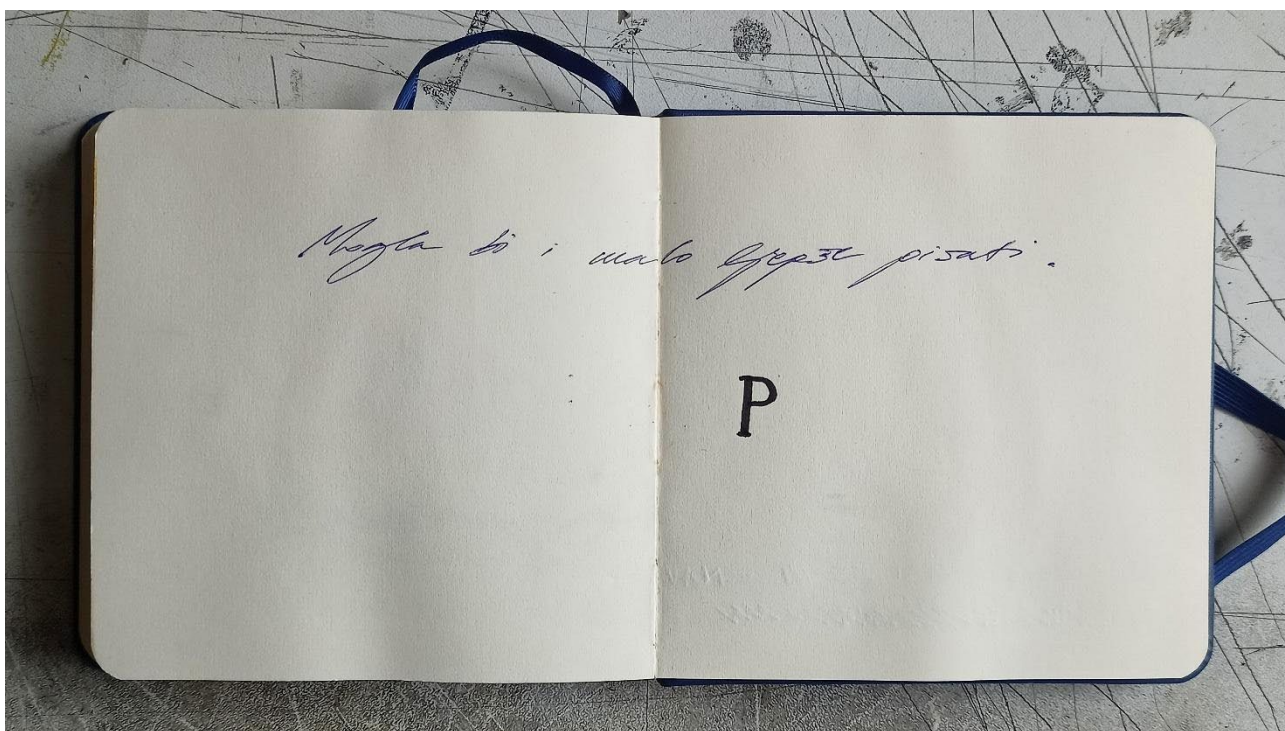 Mogla bi i malo ljepše pisati.
P